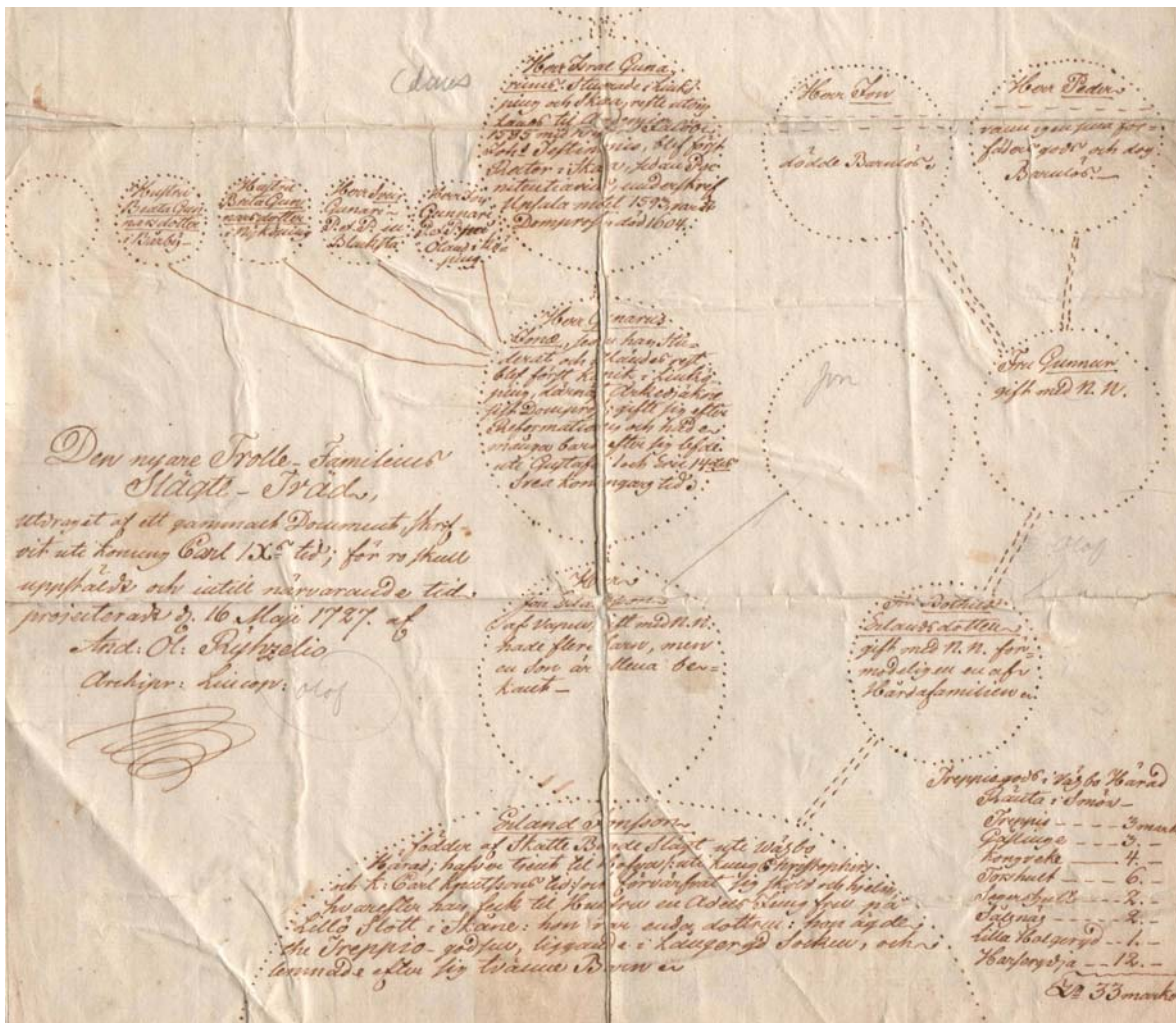 Claus
Herr Israel Guna
rinus. Studerade i Link
ping och Skara, reste utom
1595 med
Rector i Skara, sedan Pæ
nitentiarius, underskref
Upsala möte 1593,
Domprost död 1604.
Herr Jon
dödde Barnlös.
Herr Peder
vann igen sina för-
fäders gods och dog
Barnlös.
Hustru
Beata Gun
narsdotter
i Barby
Hustru
Brita Gun
narsdotter
i Nykiöping
Herr Sven
Gunari-
P. et P. in
Blacksta
Herr Jon
Gunnari
Olai i Kiö
ping
Herr Gunarus
Jonæ, sedan han Stu-
derat och utrikes rest
blef först i Linkiö-
ping, därnäst Archidiakon
sist Domprost; gifte sig efter
Reformationen och hade
många barn efter sig lefde
uti Gustafs I och Eric 14des
Svea konungars tid.
Jon
Fru Gunnur
gift med N. N.
Den nyare Trolle-Familiens
Slägte-Träd,
utdraget af ett gammalt Document, skref-
vit uti konung Carl IXs tid; för ro skull
uppstäldt och intill närvarande tid
projecteradt d. 16 Maji 1727. af
And: Ol: Rhyzelio
Archipr: Lincop:
Olof
Herr
Jon Erlandsson
af vapen, gift med N. N.
hade flere barn, men
en son är allena be-
kant-
Olof
Erlandsdotter
gift med N. N. för-
modeligen en af
Hårdafamilien
Erland Jonsson
födder af Skatte Bonde Slägt uti Wäsbo
Härad; hafver tient til uti kung Christophers
och k: Carl Knutssons tid; och förvärfvat sig sköld och hjelm
hvarefter han feck til Hustru en Adels Jungfru på
Lillö Slott i Skåne: hon var enda dottren: han ägde
the Treppio-godsen, liggande i Långeryd Sochen, och
lemnade efter sig tvänne Barn
Treppiegods i Wäsbo Härad
Ränta i Smör-
Treppie - - - - 3 mark
- - - - 3. -
4. -
Torshult - - 6. -
- - 2. -
- - - - 2. -
Lilla Halgeryd - - 1. -
- - 12. -
33 marker